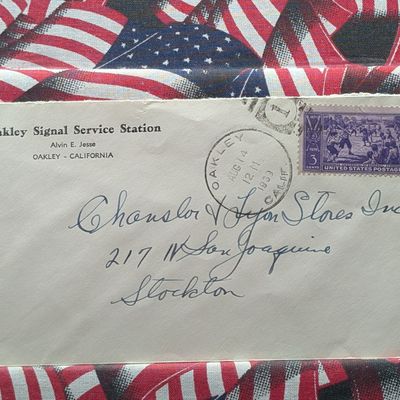 akley Signal Service Station
Alvin E. Jesse
OAKLEY - CALIFORNIA
OAKLEY
AUG 14
12 M
1939
CALIF.
3
CENTS
UNITED STATES POSTAGE
Chanslor & Lyon Stores Inc
217 N San Joaquine
Stockton